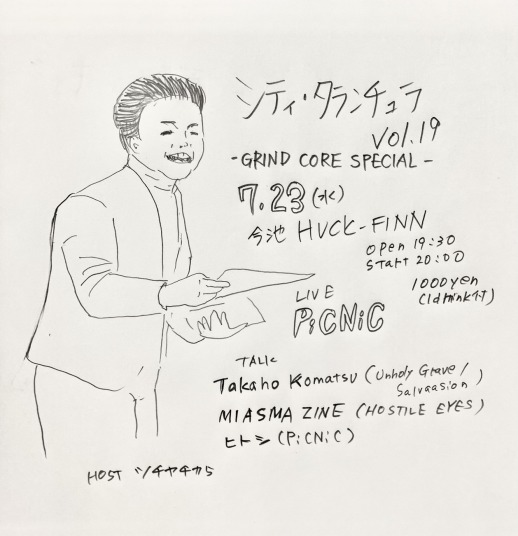 シティ・タランチュラ
VOL.19
-GRIND CORE SPECIAL-
7.23(水)
今池 HUCK-FINN
OPEN 19:30
START 20:00
1000yen
(1drink付)
LIVE
PiCNiC
TALK
Takaho Komatsu (Unholy Grave/
Salvaasion)
MIASMA ZINE (HOSTILE EYES)
ヒトシ (PiCNiC)
HOST ツチヤチカら